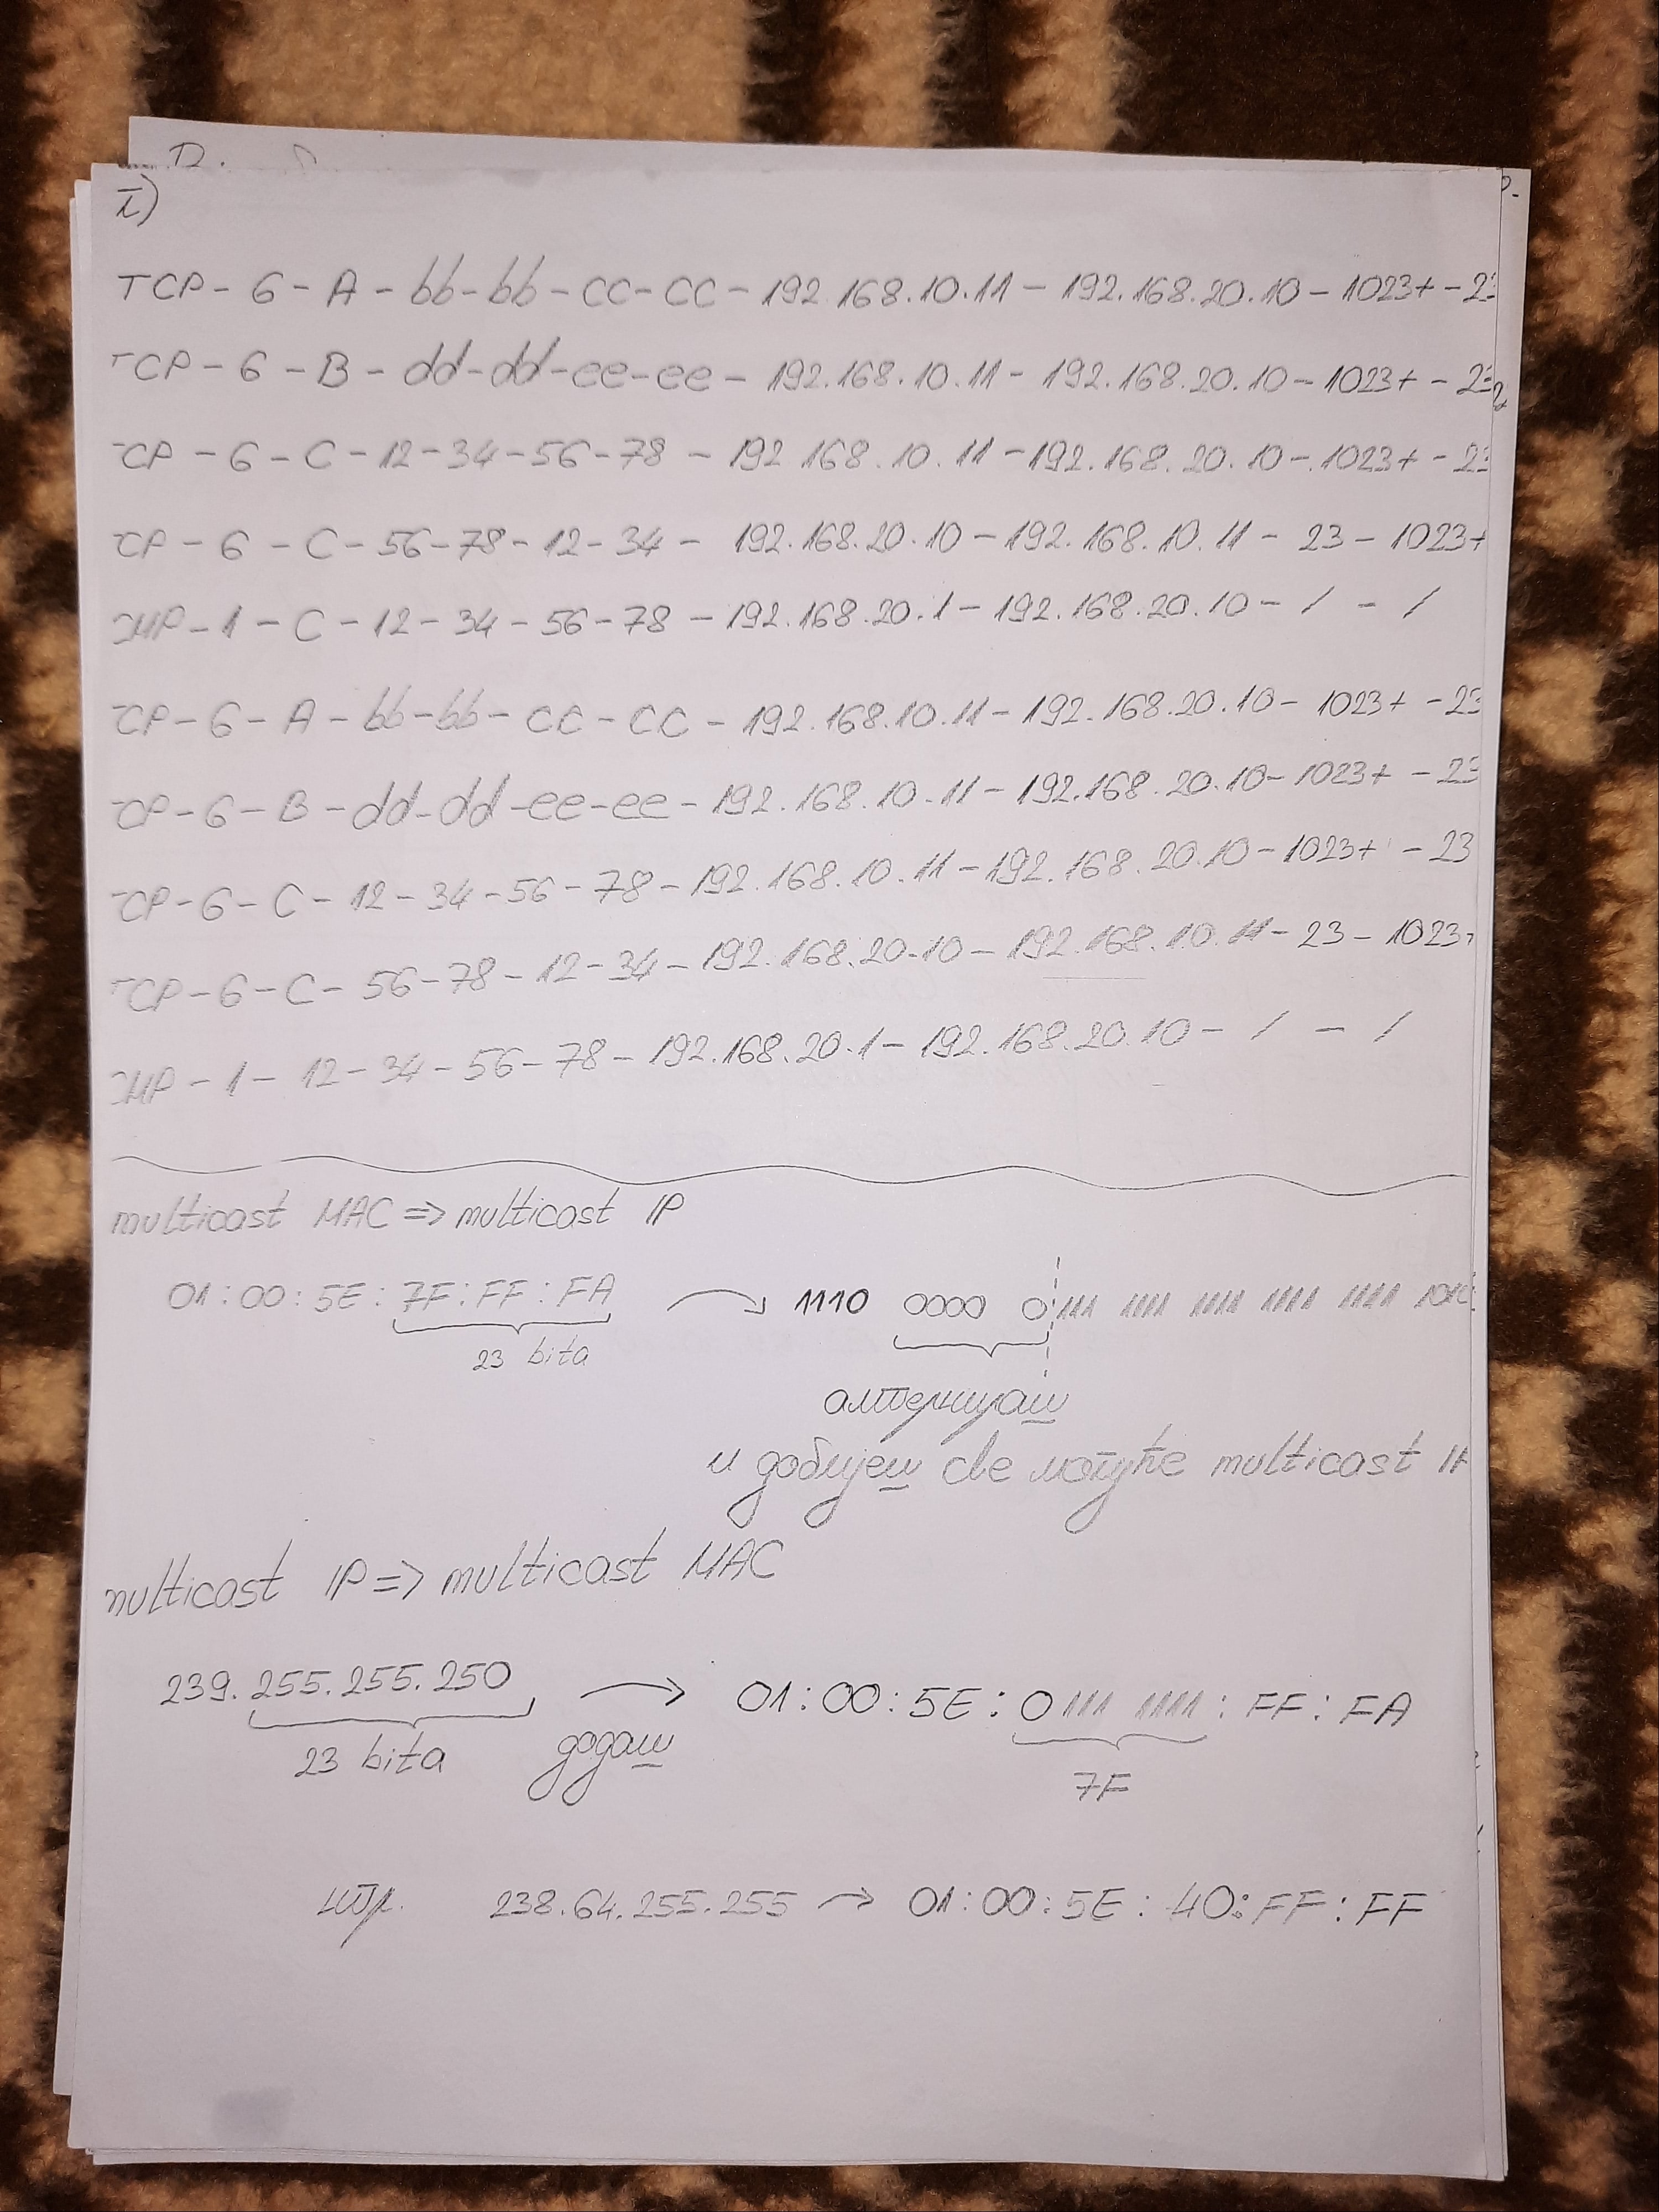 г)
TCP - 6 - A - bb - bb - CC - CC - 192.168.10.11 - 192.168.20.10 - 1023+ - 23
TCP - 6 - B - dd - dd - ee - ee - 192.168.10.11 - 192.168.20.10 - 1023+ - 23
TCP - 6 - C - 12 - 34 - 56 - 78 - 192.168.10.11 - 192.168.20.10 - 1023+ - 23
TCP - 6 - C - 56 - 78 - 12 - 34 - 192.168.20.10 - 192.168.10.11 - 23 - 1023+
ICMP - 1 - C - 12 - 34 - 56 - 78 - 192.168.20.1 - 192.168.20.10 - / - /
TCP - 6 - A - bb - bb - CC - CC - 192.168.10.11 - 192.168.20.10 - 1023+ - 23
TCP - 6 - B - dd - dd - ee - ee - 192.168.10.11 - 192.168.20.10 - 1023+ - 23
TCP - 6 - C - 12 - 34 - 56 - 78 - 192.168.10.11 - 192.168.20.10 - 1023+ - 23
TCP - 6 - C - 56 - 78 - 12 - 34 - 192.168.20.10 - 192.168.10.11 - 23 - 1023+
ICMP - 1 - 12 - 34 - 56 - 78 - 192.168.20.1 - 192.168.20.10 - / - /
multicast MAC => multicast IP
01:00:5E:7F:FF:FA → 1110 0000 0111 1111 1111 1111 1111 1010
23 bita
алтернираш
и добијеш све могуће multicast IP
multicast IP => multicast MAC
239.255.255.250 → 01:00:5E:0111 1111:FF:FA
23 bita додаш
7F
нпр. 238.64.255.255 → 01:00:5E:40:FF:FF